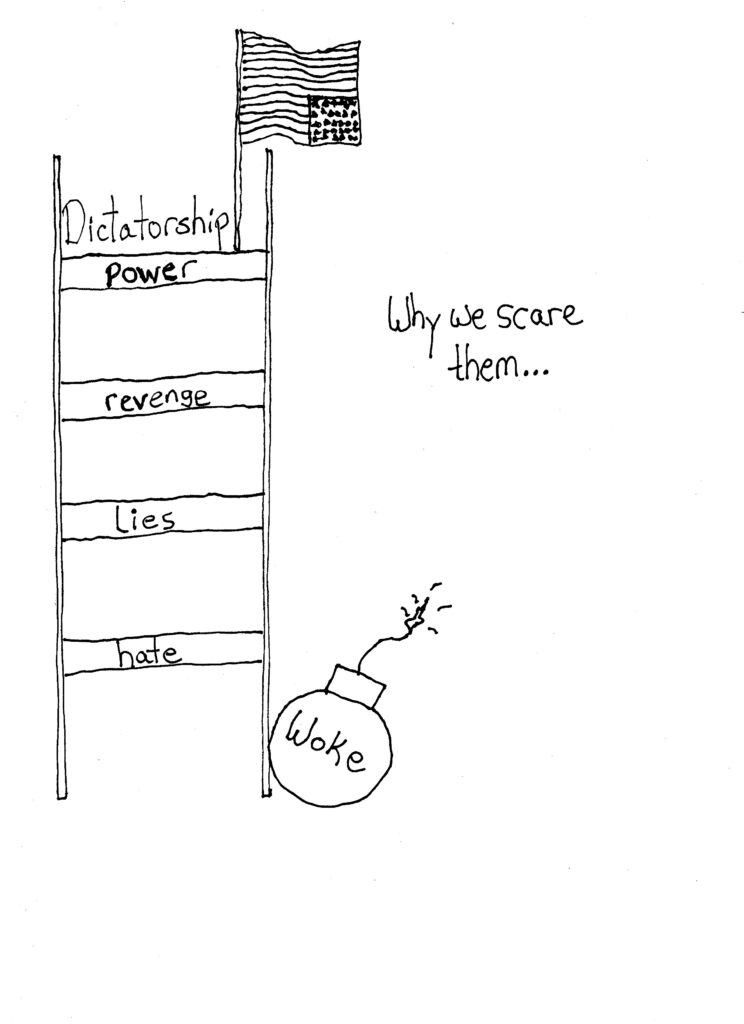 Dictatorship
power
Why we scare
them...
revenge
Lies
hate
Woke